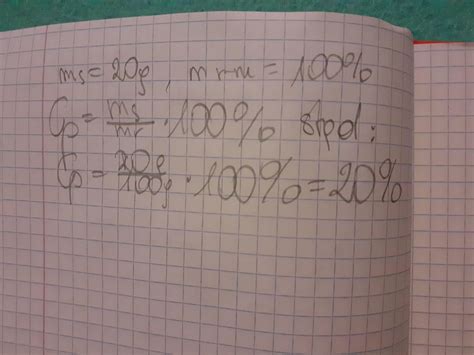 ms = 20g, mr-ru = 100%
Cp = ms/mr · 100% Stpd:
Cp = 20g/100g · 100% = 20%